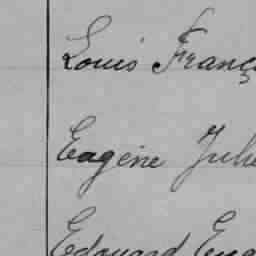 Louis Franç
Eugène Julie
Edouard Eug